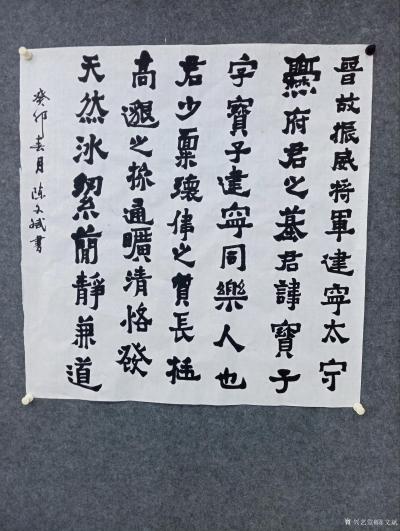 晉故振威将軍建寧太守
爨府君之墓君諱寳子
字寳子建寧同樂人也
君少稟瓌偉之質長挺
高邈之操通曠清恪發
天然冰絜簡静兼道
癸卯春月陈文斌書